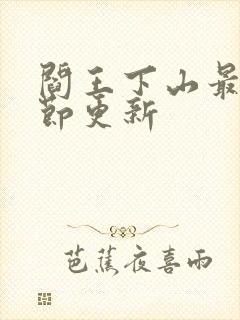 阎王下山最
节更新
芭蕉夜喜雨